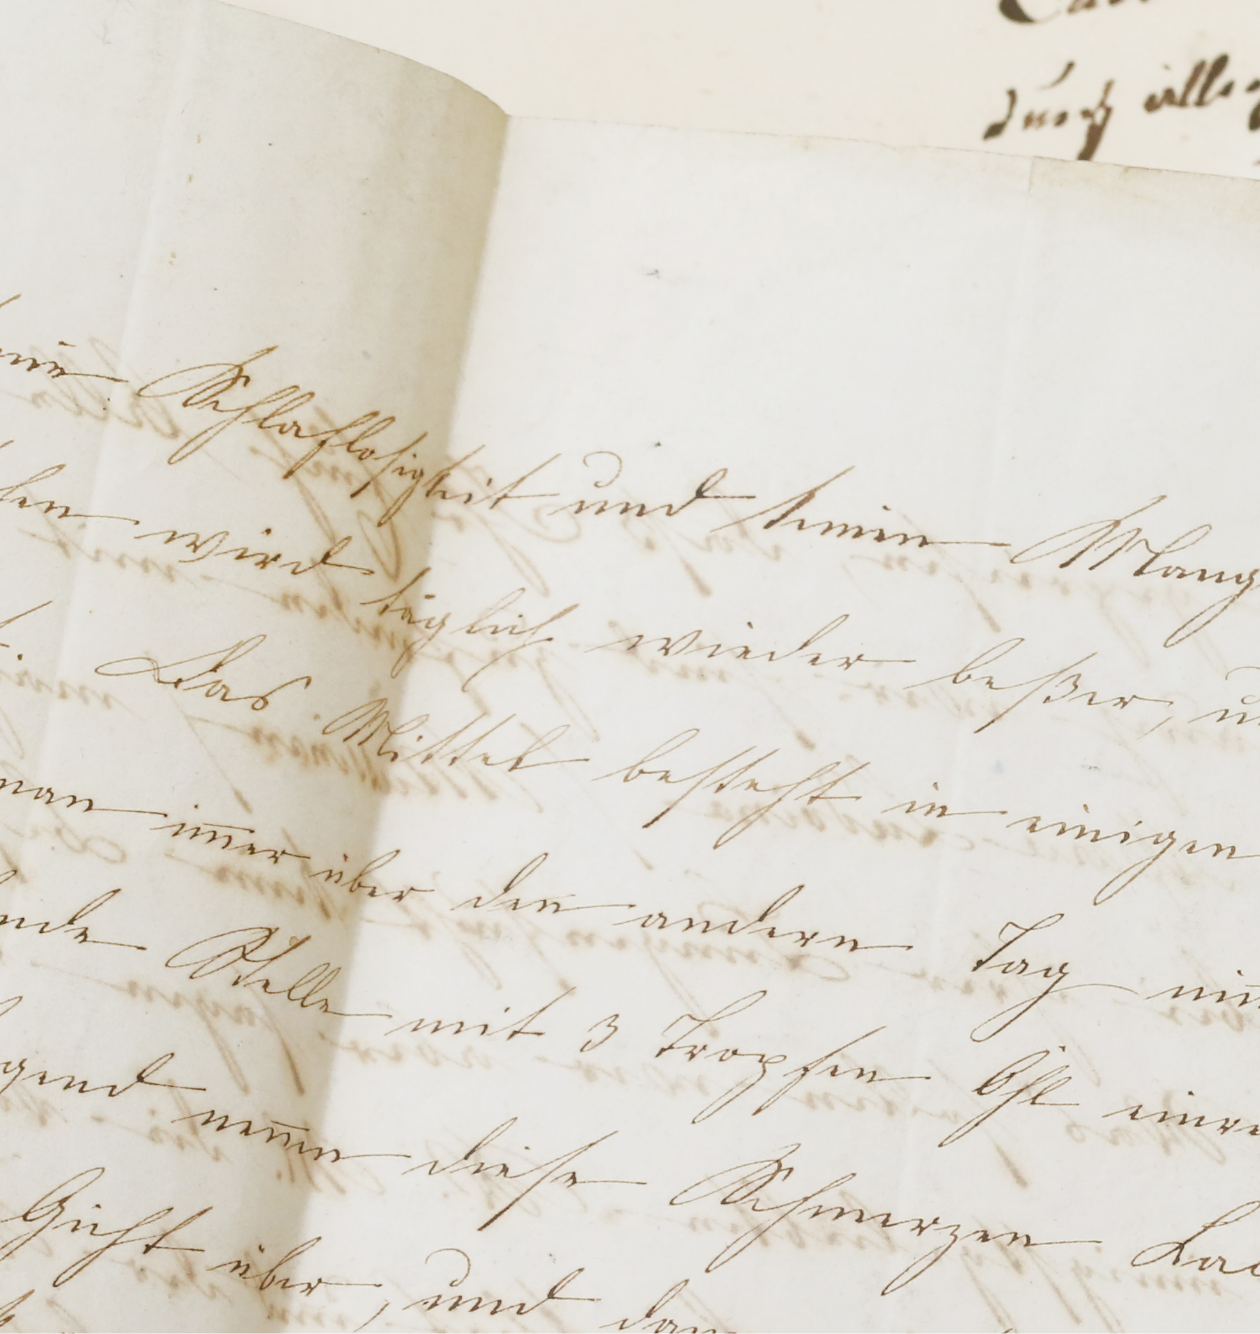 durch alle
Schlaflosigkeit und keinen Mang
wird täglich wieder beßer, u
Das Mittel besteht in einigen
man im̅er über den andern Tag
Stelle mit 3 Tropfen Öhl einre
gend nen̅en diese Schmerzen
Gicht über, und dan